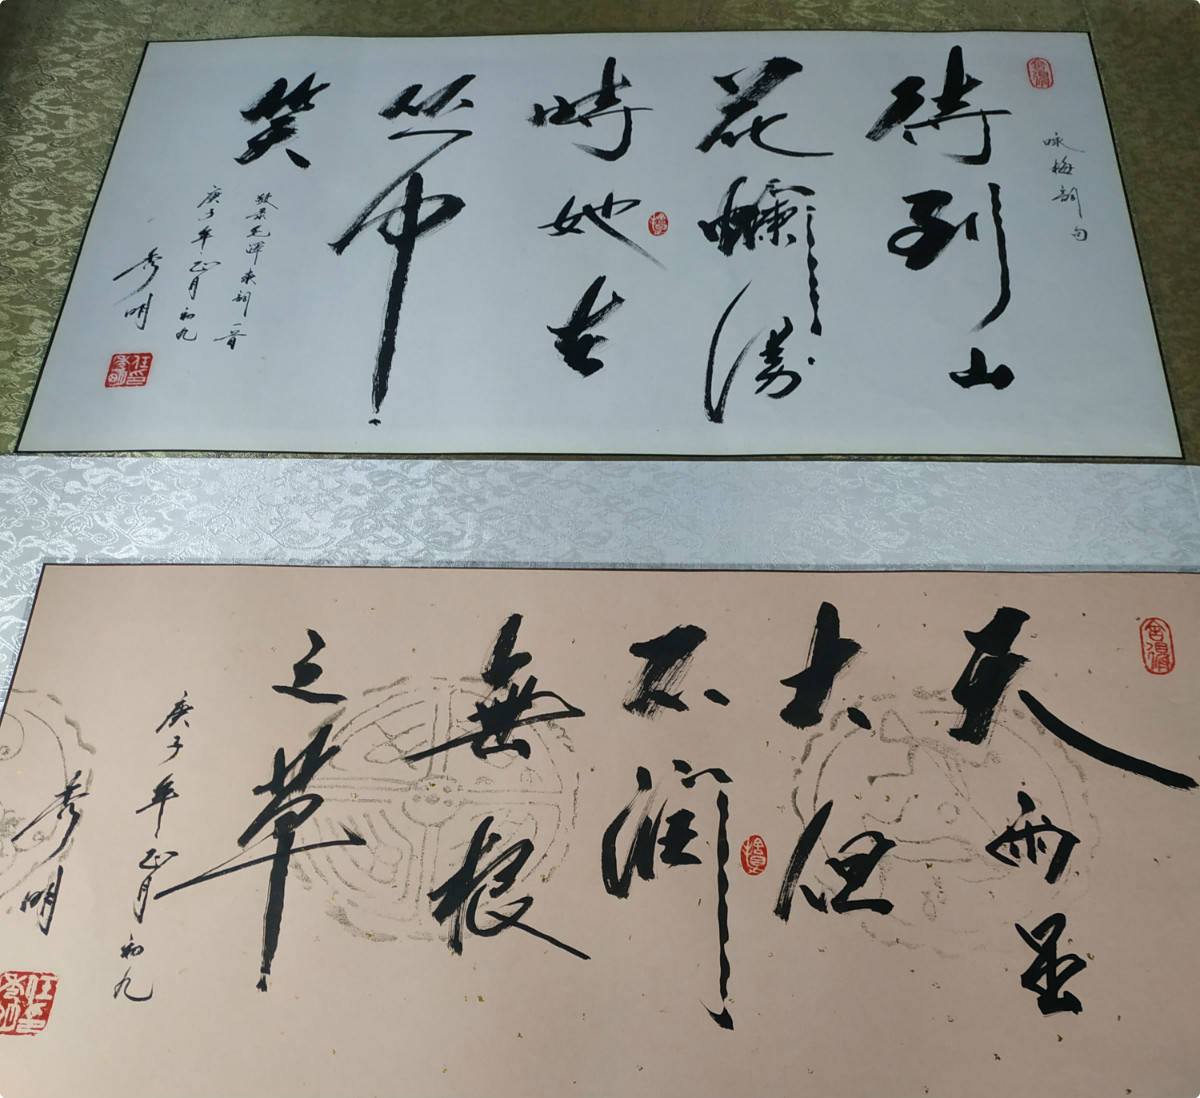 咏梅詞句
待到山
花爛漫
時她在
丛中
笑
敬录毛澤东詞一首
庚子年正月初九
秀明
天雨虽
大但
不润
無根
之草
庚子年正月初九
秀明